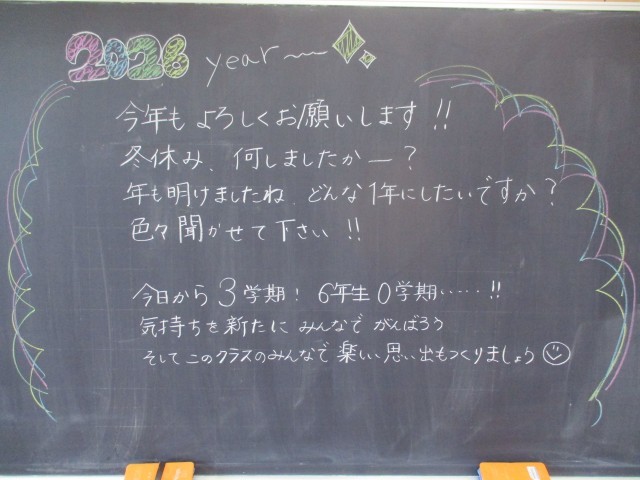 2026 year〜
今年もよろしくお願いします!!
冬休み、何しましたかー?
年も明けましたね、どんな1年にしたいですか?
色々聞かせて下さい!!
今日から3学期! 6年生0学期‥‥‥!!
気持ちを新たに みんなで がんばろう
そしてこのクラスのみんなで楽しい思い出もつくりましょう